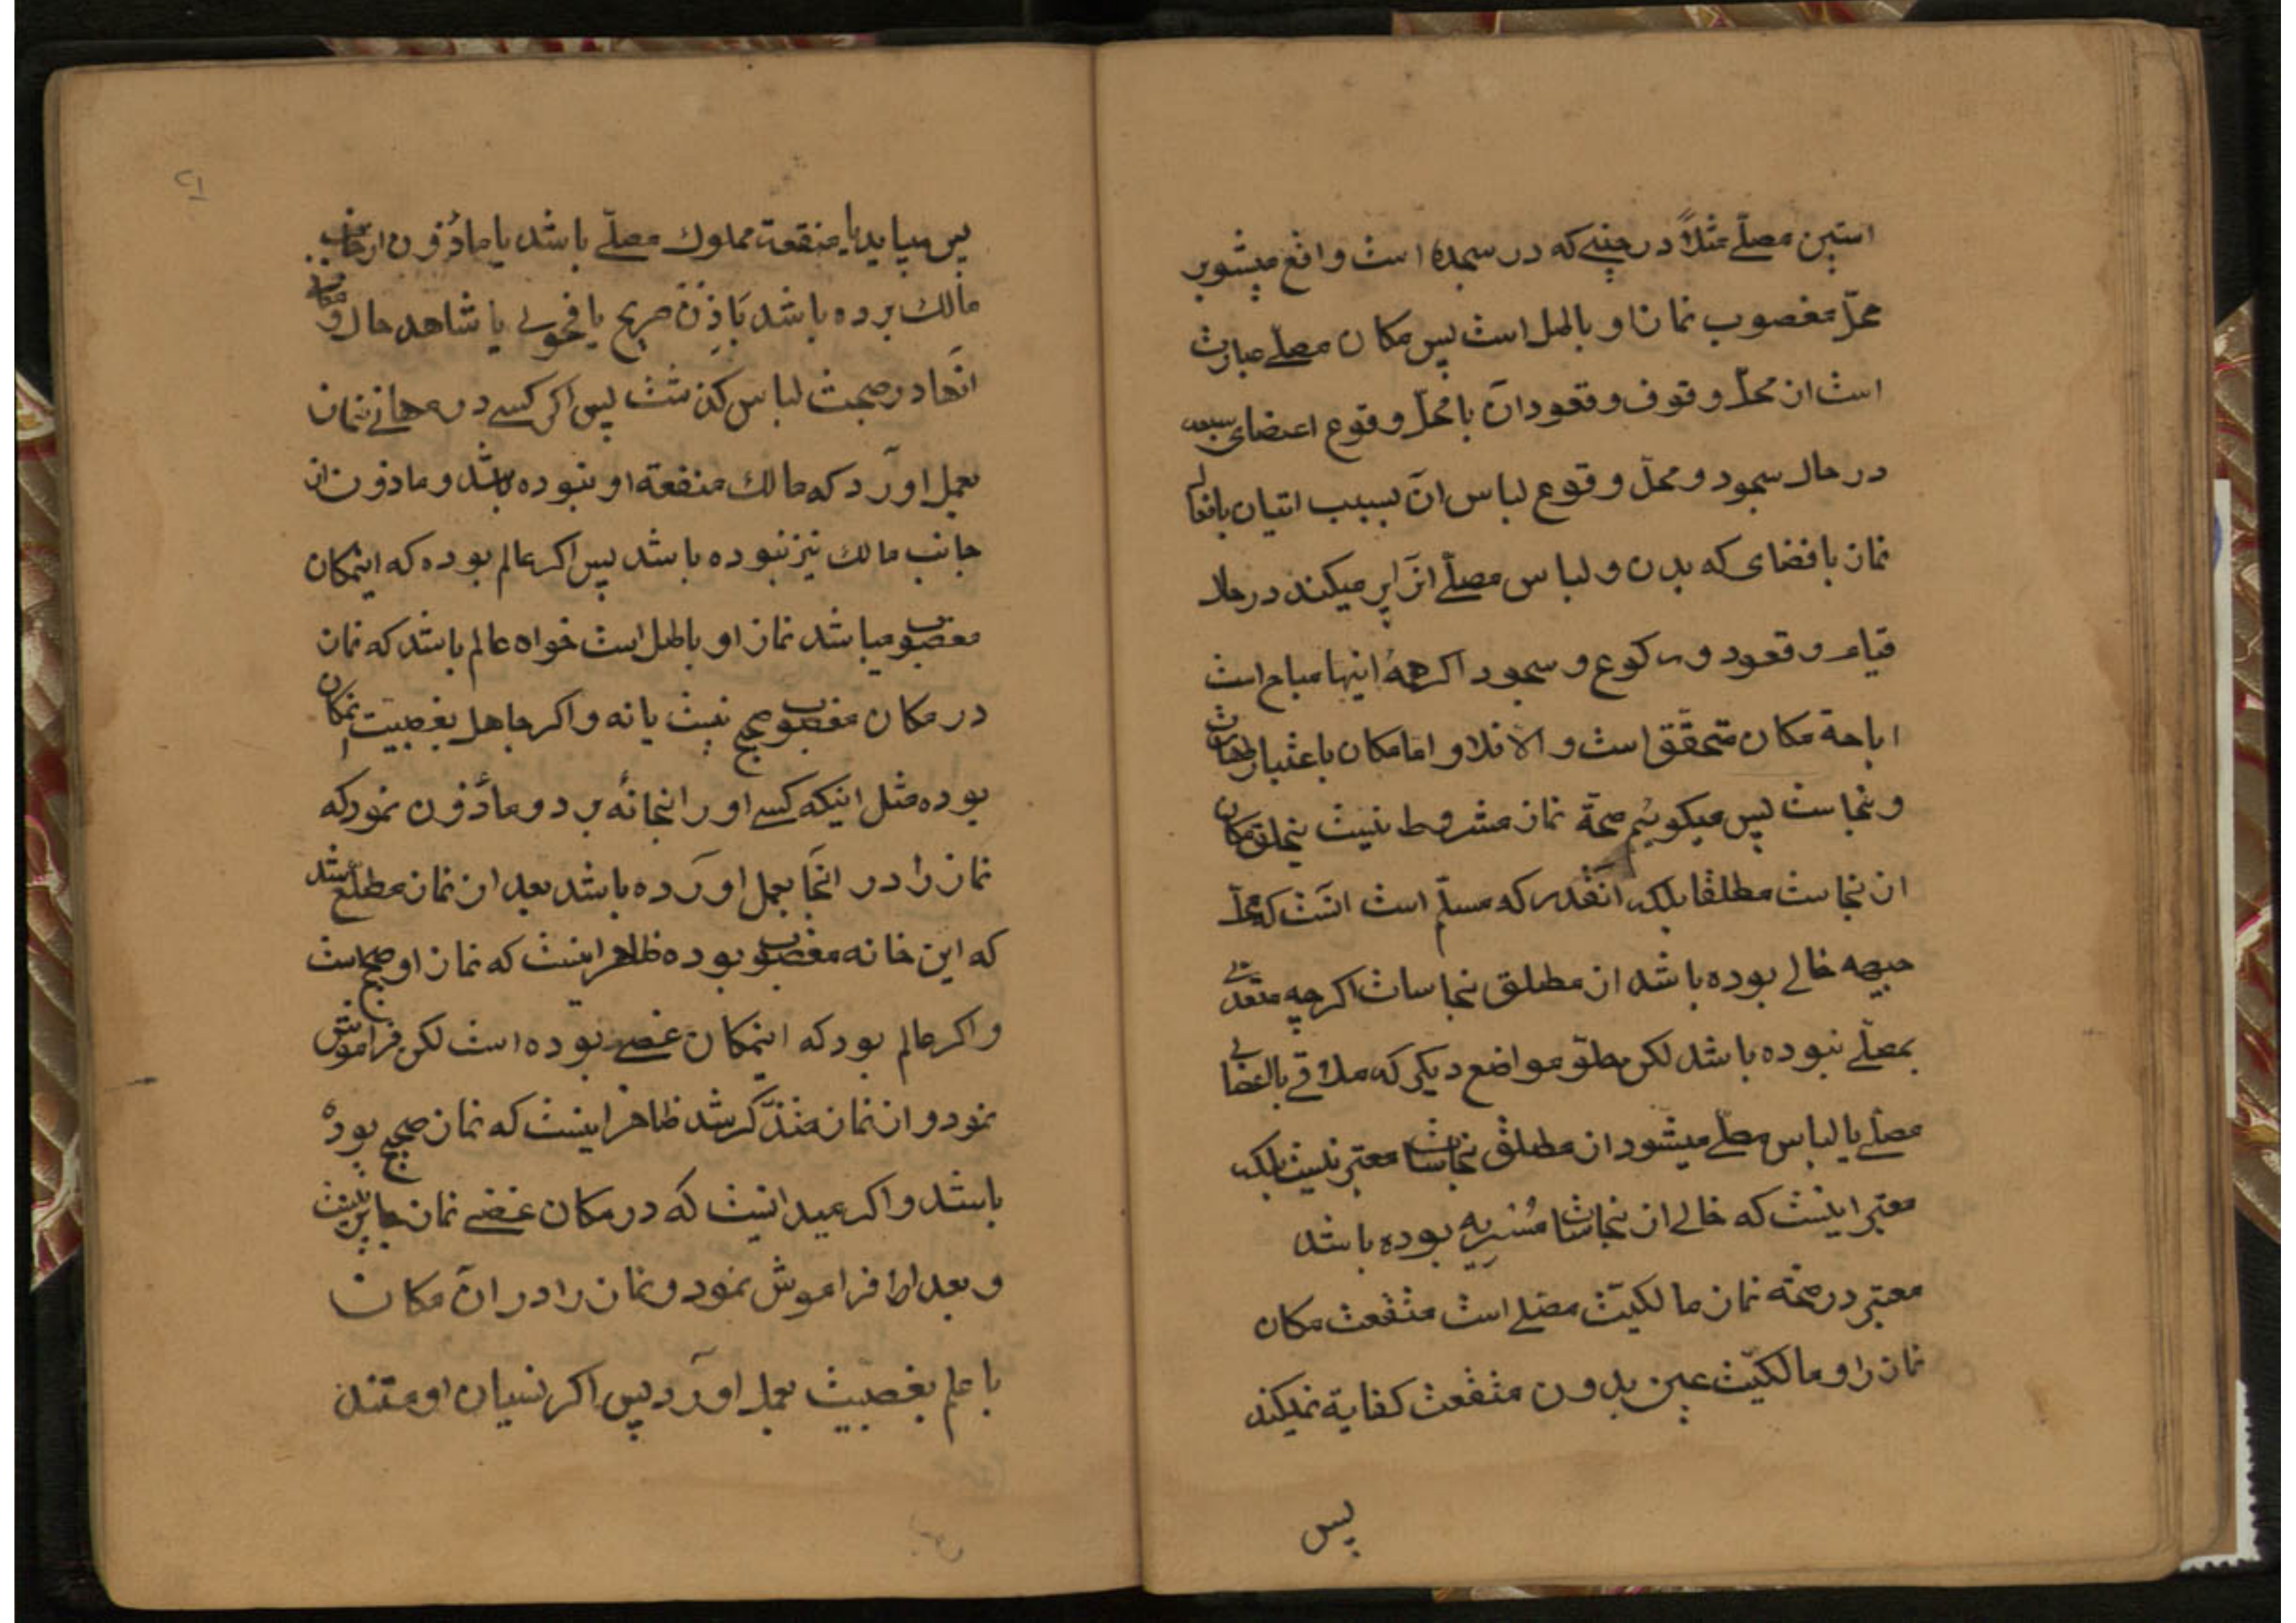 استین مصلّے مثلاً در حینے که در سجده است واقع میشود بر
محلّ مغصوب نماز او باطل است پس مکان مصلّے عبارت
است از محلّ وقوف و قعود آن یا محلّ وقوع اعضای سبعه
در حال سجود و محلّ وقوع لباس آن بسبب اتیان بافعال
نماز یا فضای که بدن و لباس مصلّے آنرا پر میکند در حال
قیام و قعود و رکوع و سجود اکر همهٔ اینها مباح است
اباحة مکان متحقّق است و الا فلا و اما مکان باعتبار طهارت
و نجاست پس میکوئیم صحّة نماز مشروط نیست بخلوّ مکان
از نجاست مطلقا بلکه آنقدر که مسلّم است آنست که محلّ
جبهه خالے بوده باشد از مطلق نجاسات اکر چه متعدّی
بمصلّے نبوده باشد لکن خلوّ مواضع دیکر که ملاقے بااعضای
مصلّے یا لباس مصلّے میشود از مطلق نجاسات معتبر نیست بلکه
معتبر اینست که خالے از نجاسات مُسْرِیه بوده باشد
معتبر در صحّة نماز مالکیّت مصلے است منفعت مکان
نماز را و مالکیّت عین بدون منفعت کفایة نمیکند
پس
۲۱
پس میباید یا منفعة مملوك مصلّے باشد یا مأذون از جانب
مالك بوده باشد بإذن صریح یا فحوی یا شاهد حال و
آنها در صحبت لباس کذشت پس اکر کسے در مکانے نماز
بعمل آورد که مالك منفعة او نبوده باشد و ماذون از
جانب مالك نیز نبوده باشد پس اکر عالم بوده که اینمکان
مغصوب میباشد نماز او باطل است خواه عالم باشد که نماز
در مکان مغصوب صحیح نیست یا نه و اکر جاهل بغصبیّت اینمکان
بوده مثل اینکه کسے او را بخانهٔ برد و مأذون نمود که
نماز را در آنجا بعمل آورده باشد بعد از نماز مطلّع شد
که این خانه مغصوب بوده ظاهر اینست که نماز او صحیح است
و اکر عالم بود که اینمکان غصبے بوده است لکن فراموش
نمود و از نماز متذکّر شد ظاهر اینست که نماز صحیح بوده
باشد و اکر میدانیست که در مکان غصبے نماز جایز نیست
و بعد از آن فراموش نمود و نماز را در آن مکان
با علم بغصبیّت بعمل آورد پس اکر نسیان او مستند